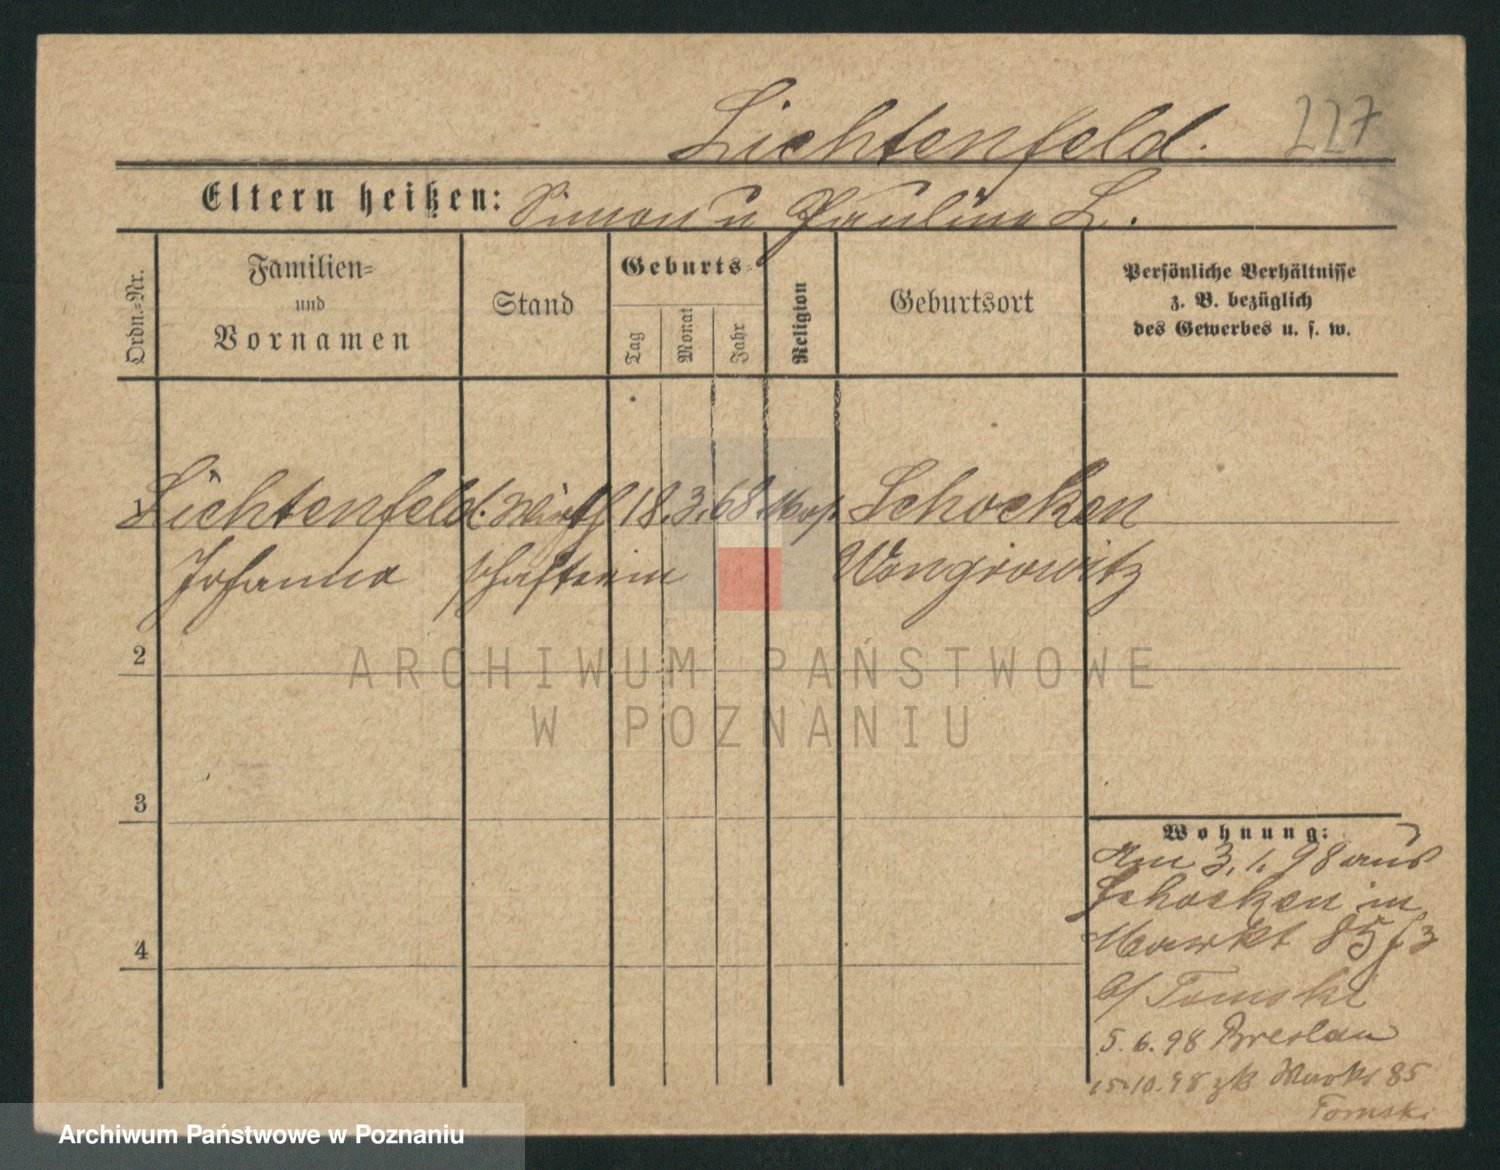 Lichtenfeld.
227
Eltern heißen: Simon u Pauline L.
Ordn.-Nr.
Familien-
und
Vornamen
Stand
Geburts-
Tag
Monat
Jahr
Religion
Geburtsort
Persönliche Verhältnisse
z. B. bezüglich
des Gewerbes u. s. w.
1 Lichtenfeld. Wirth 18. 3. 68. Mos. Schocken
Johanna schafterin Wongrowitz
2
ARCHIWUM PAŃSTWOWE
W POZNANIU
3
Wohnung:
Am 3. 1. 98 aus
Schocken in
Markt 85
4
b/ Tomski
5. 6. 98 Breslau
15.10.98 zk Markt 85
Tomski
Archiwum Państwowe w Poznaniu